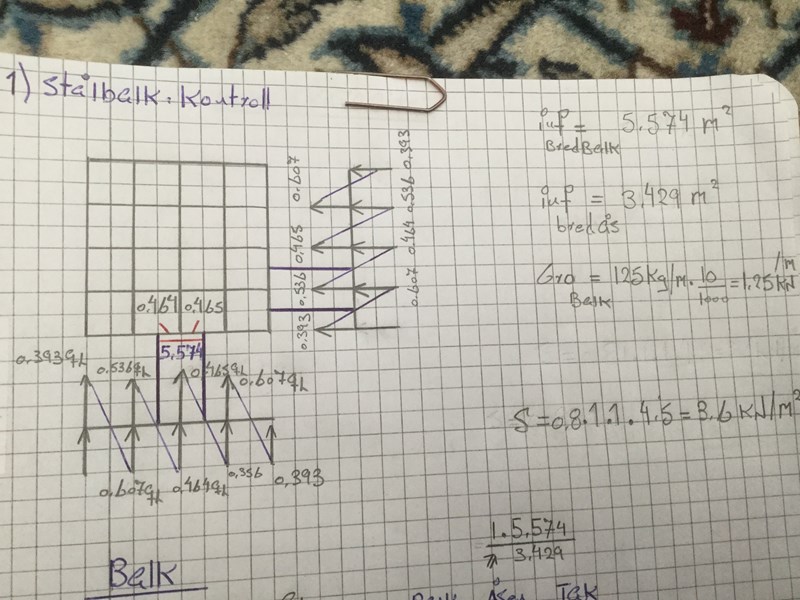 1) Stålbalk. Kontroll
inf = 5.574 m²
BredBalk
inf = 3.429 m²
bredås
Gro = 125 Kg/m · 10/1000 = 1.25 kN/m
Balk
S = 0,8.1.1.4.5 = 3.6 KN/m²
1.5,574
3.429
0.607
0.465
0.536
0.393
0.393
0.536
0.464
0.607
0.464 0.465
5.574
0.393qL
0.536qL
0.465qL
0.607qL
0.607qL
0.464qL
0.356
0.393
Balk
Åser Tak